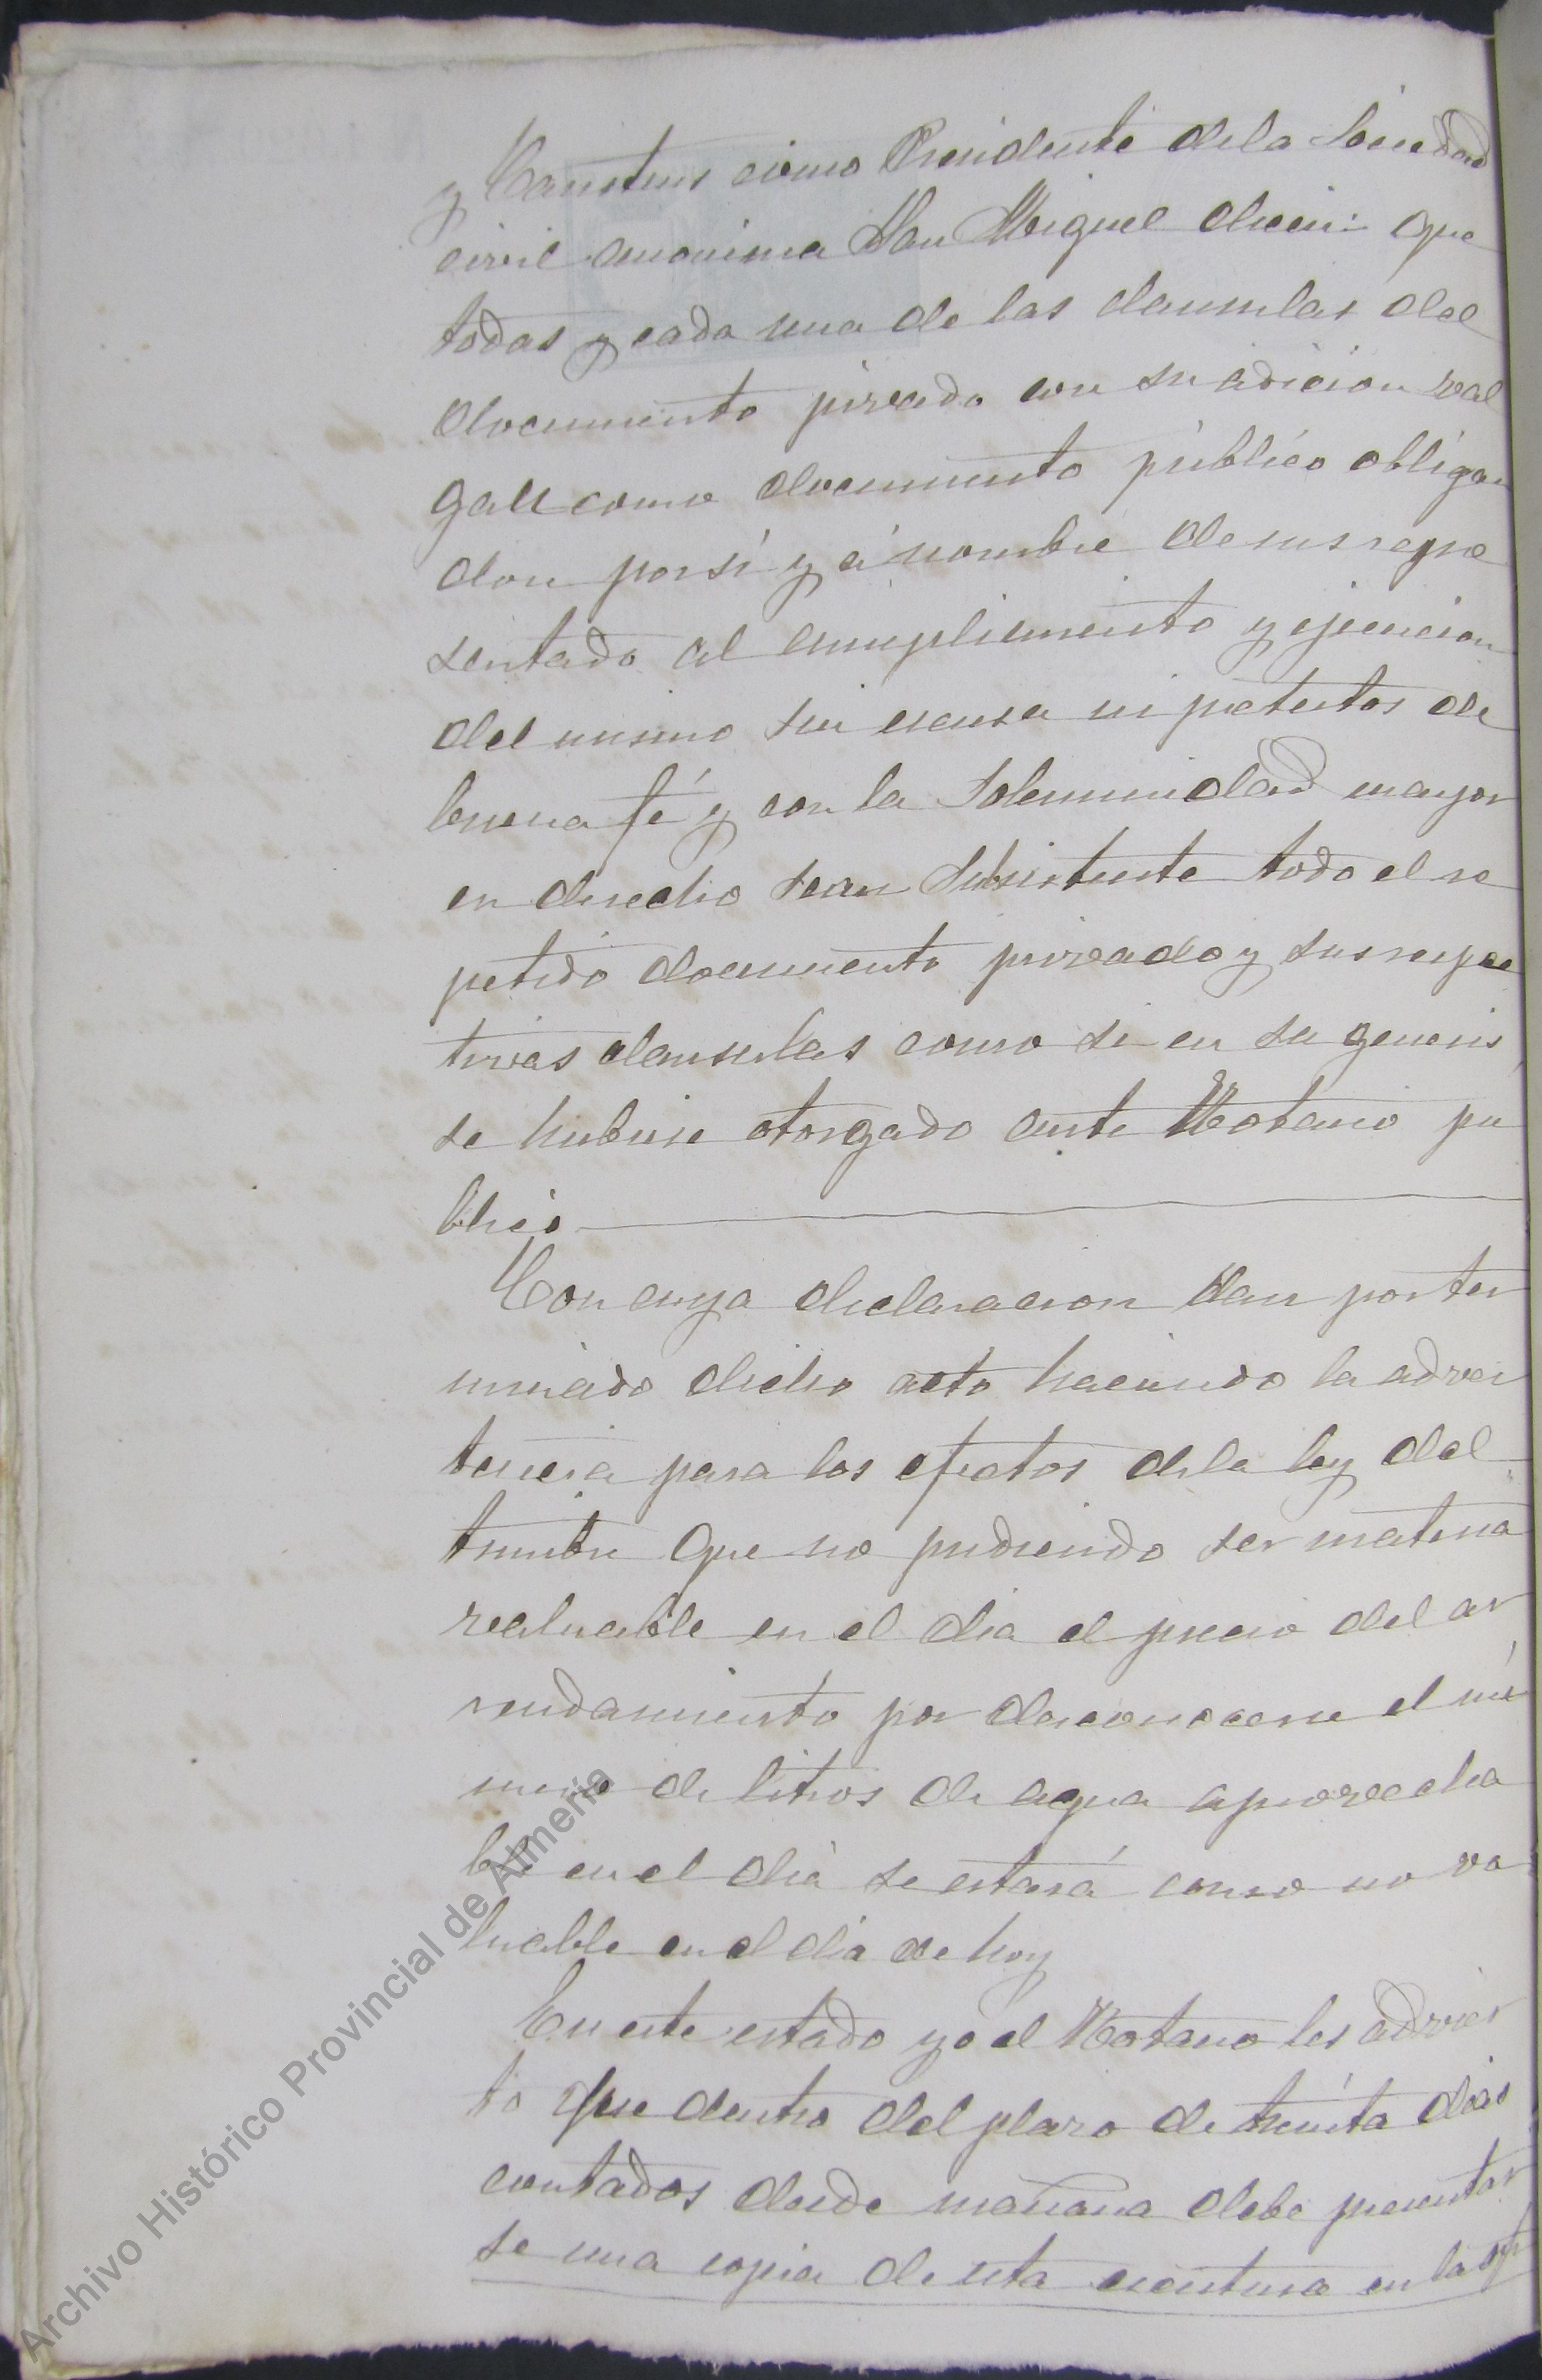 y como Presidente dela Sociedad
civil anonima San Miguel dicen: Que
todas y cada una de las clausulas del
documento privado con su adicion val
gan como documento público obligan
don por sí y á nombre de sus repre
sentado al cumplimiento y ejecucion
del mismo sin escusa ni pretestos de
buena fé y con la Solemnidad mayor
en derecho sean Subsistente todo el re
petido documento privado y sus respec
tivas clausulas como si en su genesis
se hubiese otorgado ante Notario pu
blico
Con cuya declaracion dan por ter
minado dicho acto haciendo la adver
tencia para los efectos dela ley del
timbre Que no pudiendo ser materia
valuable en el dia el precio del ar
rendamiento por desconocerse el nú
mero de litros de agua aprovecha
ble en el dia se estará como no va
luable en el dia de hoy
En este estado yo el Notario les advier
to Que dentro del plazo de treinta dias
contados desde mañana debe presentar
se una copia de esta escritura en la
Archivo Histórico Provincial de Almería